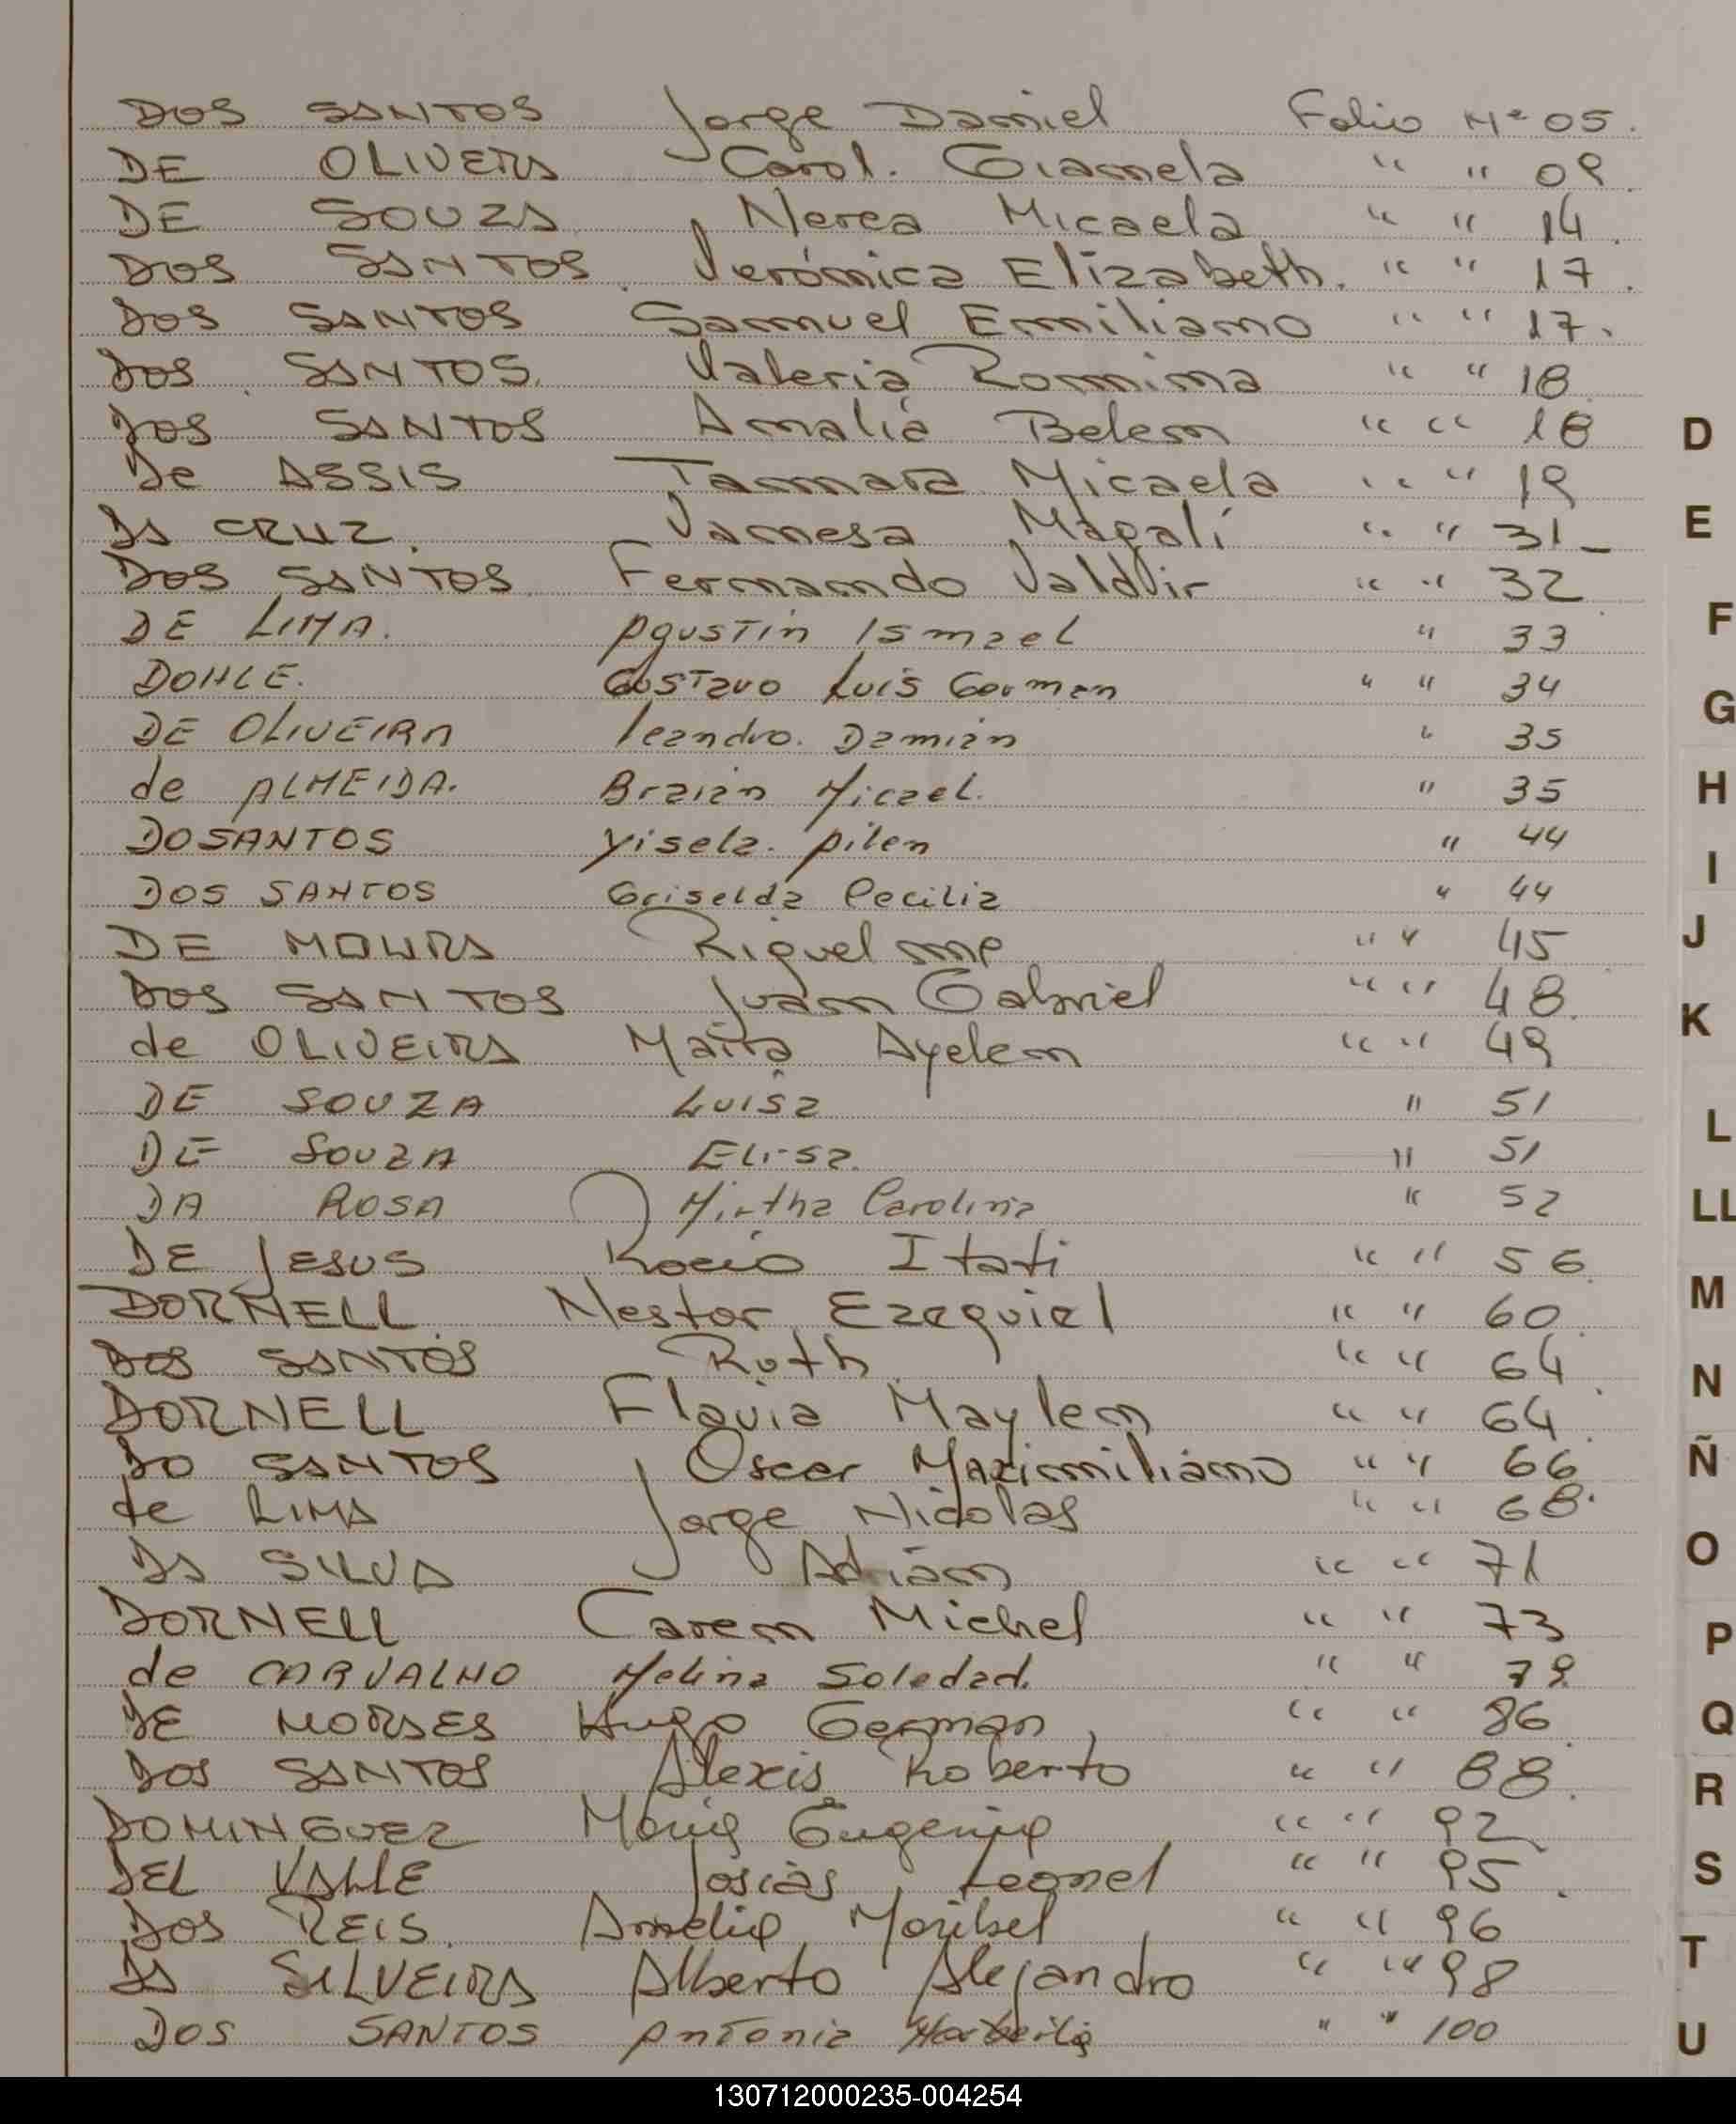 DOS SANTOS Jorge Daniel Folio Nº 05.
DE OLIVERA Carol. Giamela " " 09.
DE SOUZA Nerea Micaela " " 14.
DOS SANTOS Verónica Elizabeth. " " 17.
DOS SANTOS Samuel Emiliano " " 17.
DOS SANTOS. Valeria Romina " " 18
DOS SANTOS Amalia Belem " " 18
De ASSIS Tamara Micaela " " 19
DA CRUZ. Vanesa Magalí " " 31_
DOS SANTOS Fernando Valdvir " " 32
DE LIMA. Agustín Ismael " 33
DOHLE. Gustavo Luis German " " 34
DE OLIVEIRA leandro. Damián " 35
de ALMEIDA. Braian Micael. " 35
DOSANTOS Yisela. pilen " 44
DOS SANTOS Griselda Cecilia " 44
DE MOURA Riquelme " " 45
DOS SANTOS Juan Gabriel " " 48.
de OLIVEIRA Maira Ayelem " " 49
DE SOUZA Luisa " 51
DE SOUZA Elisa. " 51
DA ROSA Mirtha Carolina " 52
DE JESUS Rocio Itati " " 56.
DORNELL. Nestor Ezequiel " " 60.
DOS SANTOS Ruth " " 64.
DORNELL Flavia Maylem " " 64.
DO SANTOS Oscar Maximiliano " " 66
de LIMA Jorge Nicolas " " 68.
DA SILVA Adrián " " 71
DORNELL Carem Michel " " 73
de CARVALHO Melina Soledad. " " 79
DE MORAES Hugo German " " 86.
DOS SANTOS Alexis Roberto " " 88.
DOMINGUEZ María Eugenia " " 92
DEL VALLE Josias Leonel " " 95.
DOS REIS. Amelia Maribel " " 96
DA SILVEIRA Alberto Alejandro " " 98
DOS SANTOS Antonia " " 100
D
E
F
G
H
I
J
K
L
LL
M
N
Ñ
O
P
Q
R
S
T
U
130712000235-004254